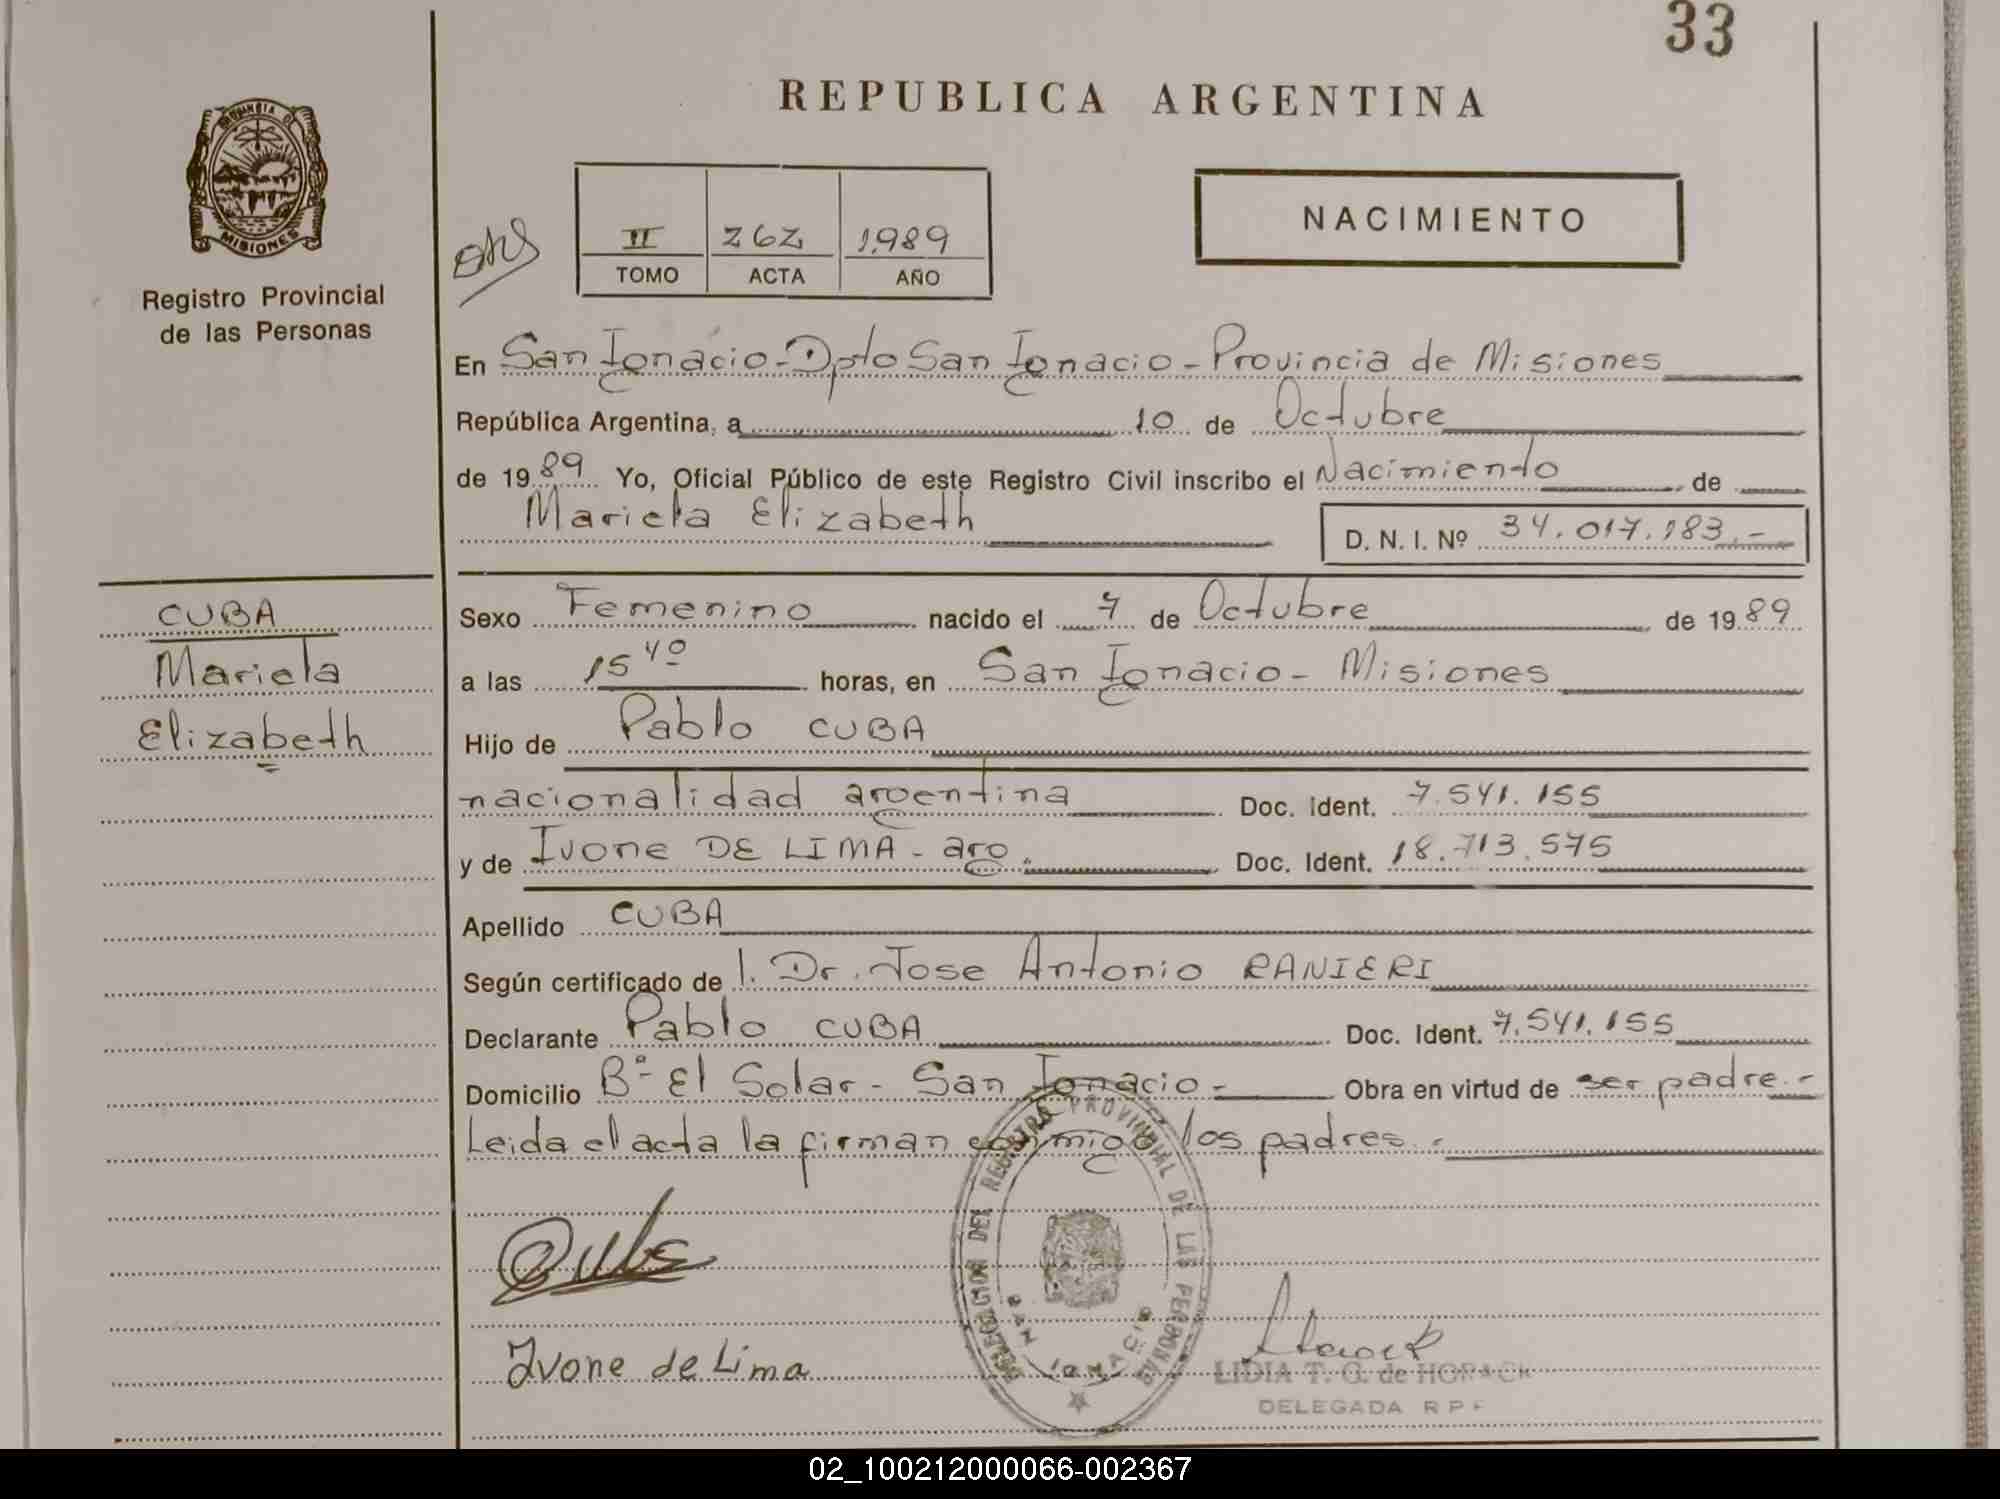 33
REPUBLICA ARGENTINA
PROVINCIA D
MISIONES
Registro Provincial
de las Personas
II 262 1.989
TOMO ACTA AÑO
NACIMIENTO
En San Ignacio - Dpto San Ignacio - Provincia de Misiones
República Argentina, a 10 de Octubre
de 1989 Yo, Oficial Público de este Registro Civil inscribo el Nacimiento de
Mariela Elizabeth D. N. I. Nº 34.017.183.-
CUBA
Mariela
Elizabeth
Sexo Femenino nacido el 7 de Octubre de 1989
a las 15 40 horas, en San Ignacio - Misiones
Hijo de Pablo CUBA
nacionalidad argentina Doc. Ident. 7.541.155
y de Ivone DE LIMA - arg. Doc. Ident. 18.713.575
Apellido CUBA
Según certificado de l. Dr. Jose Antonio RANIERI
Declarante Pablo CUBA Doc. Ident. 7.541.155
Domicilio Bº El Solar - San Ignacio - Obra en virtud de ser padre.-
Leida el acta la firman conmigo los padres.-
DELEGACION DEL REGISTRO PROVINCIAL DE LAS PERSONAS
SAN IGNACIO
Ivone de Lima
LIDIA T. G. de HORACK
DELEGADA R P
02_100212000066-002367